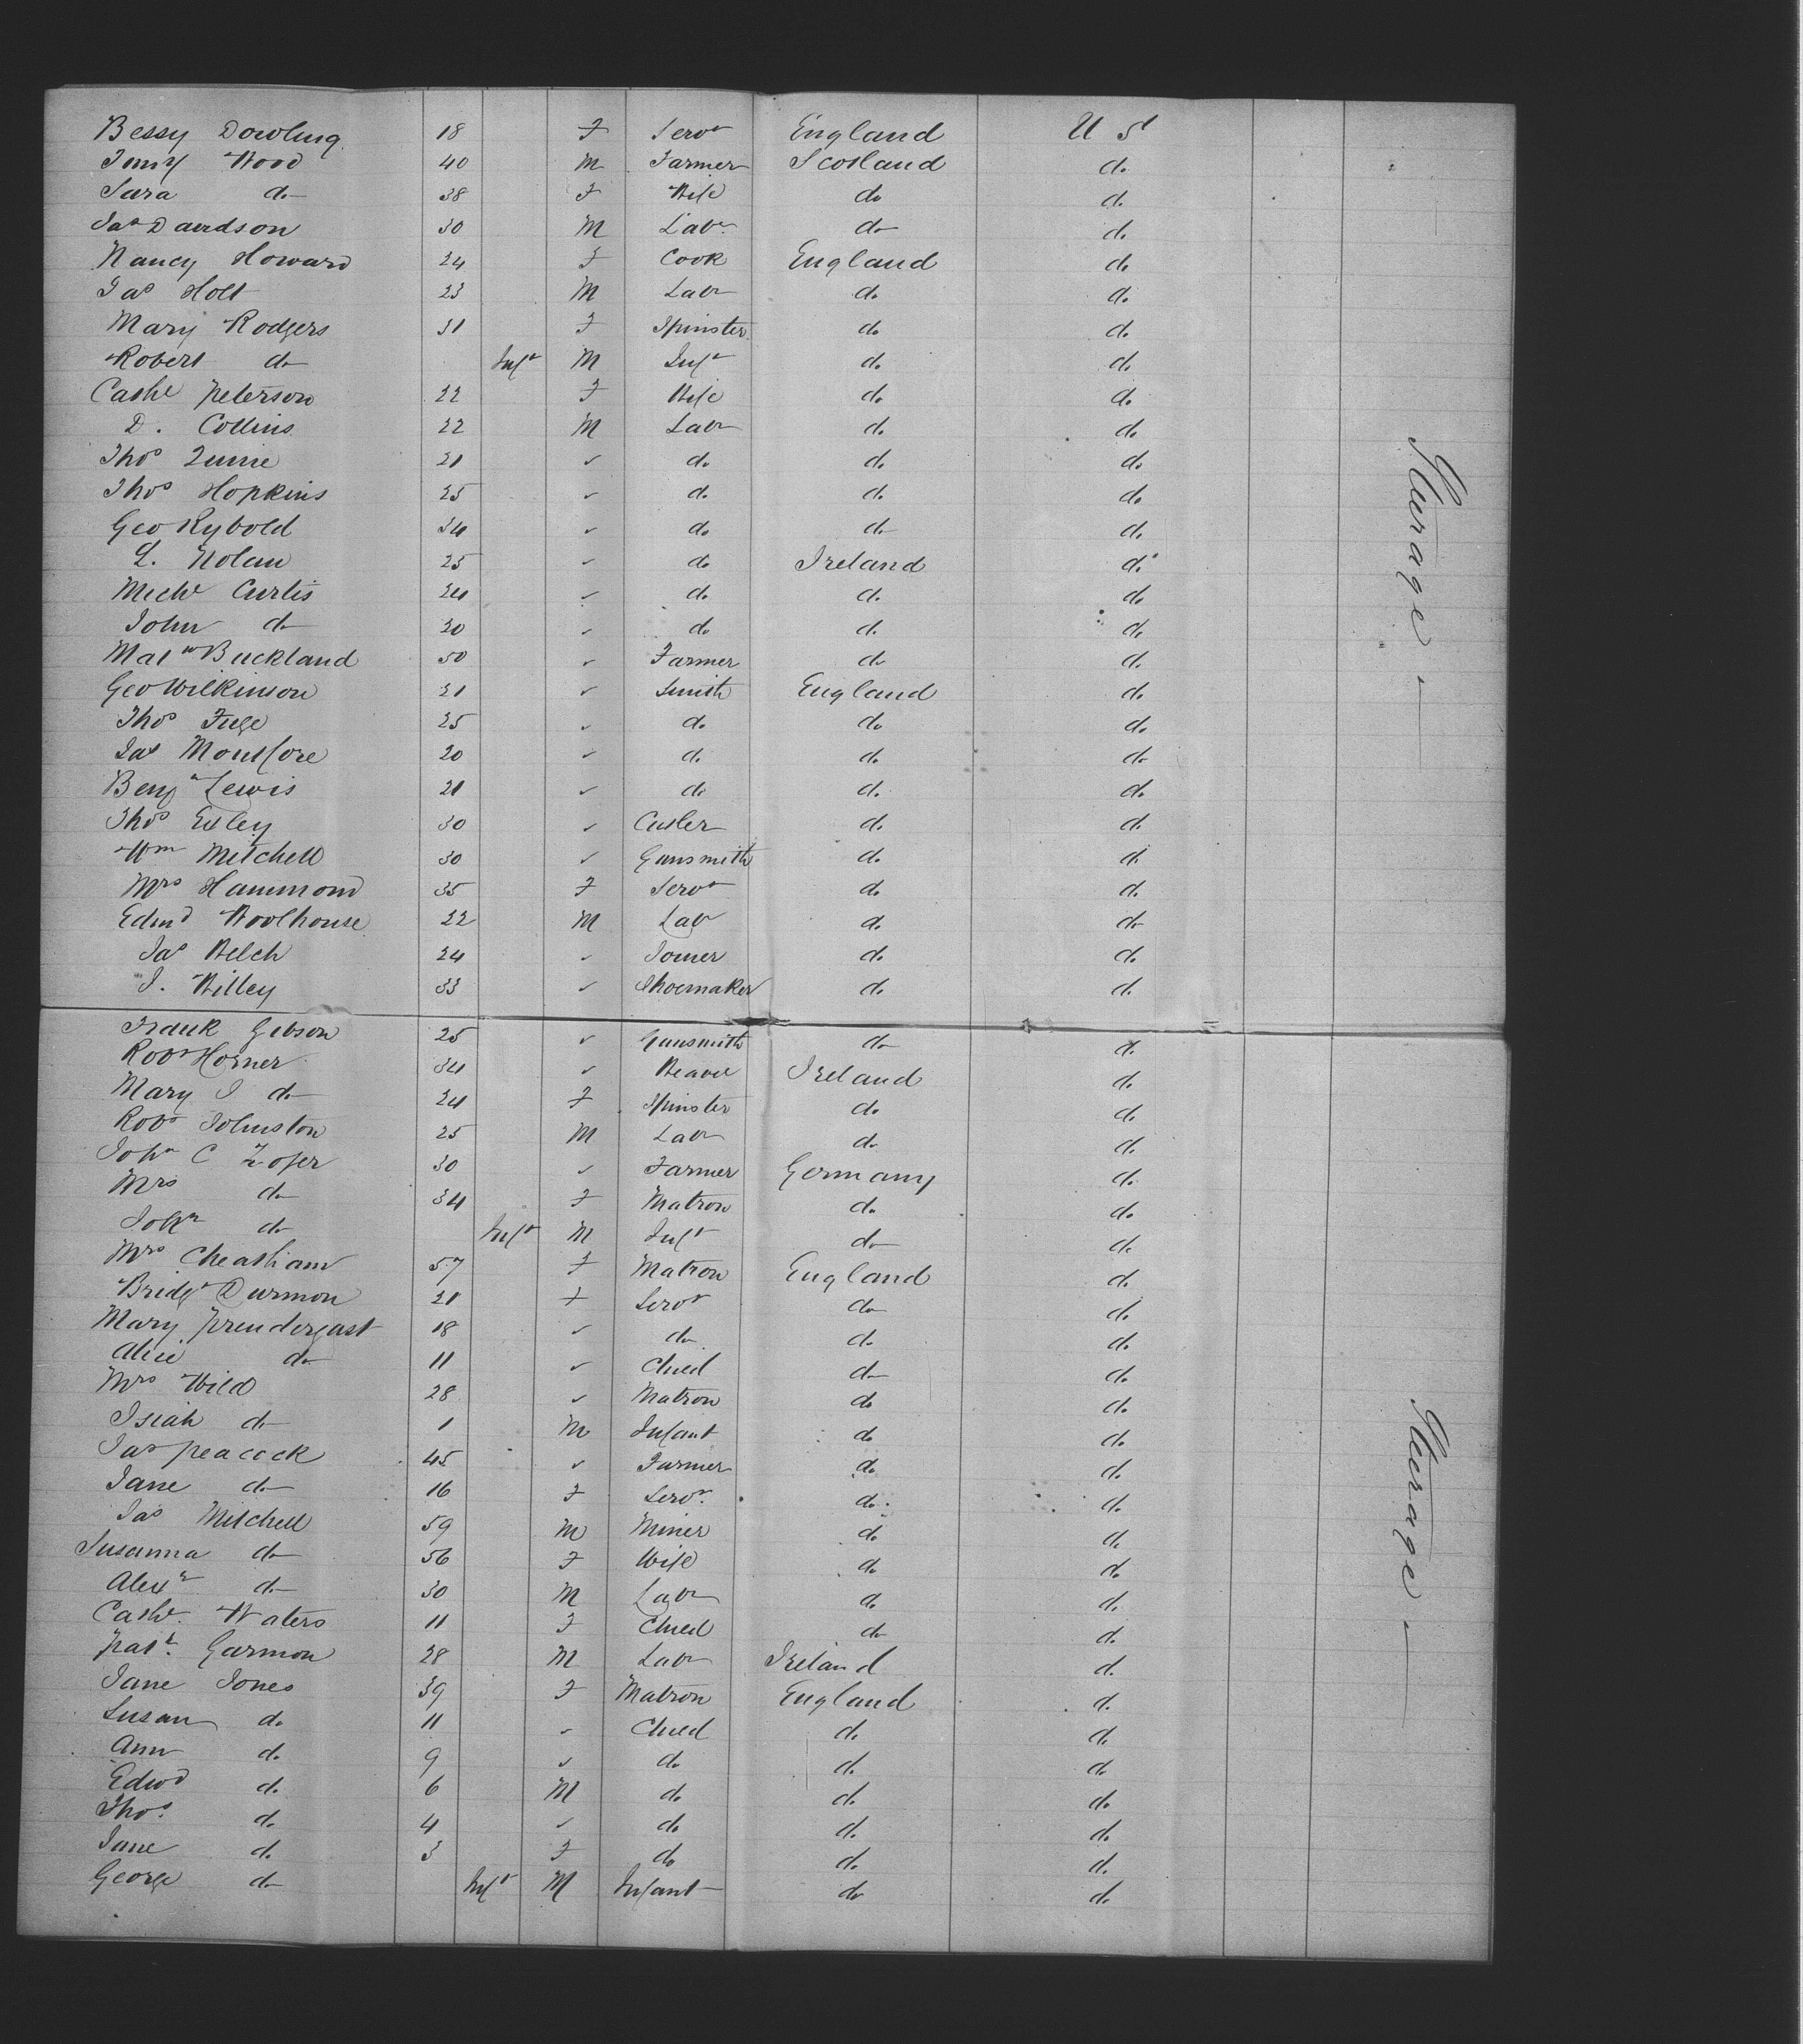 Bessy Dowling 18 F Servt England U St
Jenny Wood 40 M Farmer Scotland do
Sara do 38 F Wife do do
Jas Davidson 30 M Labr do do
Nancy Howard 24 F Cook England do
Jas Holt 23 M Labr do do
Mary Rodgers 31 F Spinster do do
Robert do Inft M Inft do do
Cathe Peterson 22 F Wife do do
D. Collins 22 M Labr do do
Thos 21 ✓ do do do
Thos Hopkins 25 ✓ do do do
Geo Rybold 34 ✓ do do do
L. Nolan 25 ✓ do Ireland do
Michl Curtis 24 ✓ do do do
John do 20 ✓ do do do
Matw Buckland 50 ✓ Farmer do do
Geo Wilkinson 21 ✓ Smith England do
Thos Fuge 25 ✓ do do do
Jas Montfore 20 ✓ do do do
Benjn Lewis 21 ✓ do do do
Thos Exley 30 ✓ Cutler do do
Wm Mitchell 30 ✓ Gunsmith do do
Mrs Hammond 35 F Servt do do
Edmd Woolhouse 22 M Labr do do
Jas Welch 24 ✓ Joiner do do
J. Willey 33 ✓ Shoemaker do do
Frank Gibson 25 ✓ Gunsmith do do
Robt Horner 34 ✓ Ireland do
Mary J do 24 F Spinster do do
Robt Johnston 25 M Labr do do
John C Zofer 30 ✓ Farmer Germany do
Mrs do 34 F Matron do do
John do Inft M Inft do do
Mrs Cheatham 57 F Matron England do
Bridgt Durmon 21 F Servt do do
Mary Prendergast 18 ✓ do do do
Alice do 11 ✓ Child do do
Mrs Wild 28 ✓ Matron do do
Isiah do 1 M Infant do do
Jas Peacock 45 ✓ Farmer do do
Jane do 16 F Servt do do
Jas Mitchell 59 M Miner do do
Susanna do 56 F Wife do do
Alexr do 30 M Labr do do
Cathe Waters 11 F Child do do
Patk Garmon 28 M Labr Ireland do
Jane Jones 39 F Matron England do
Susan do 11 ✓ Child do do
Ann do 9 ✓ do do do
Edwd do 6 M do do do
Thos. do 4 ✓ do do do
Jane do 3 F do do do
George do Inft M Infant do do
Steerage —
Steerage —